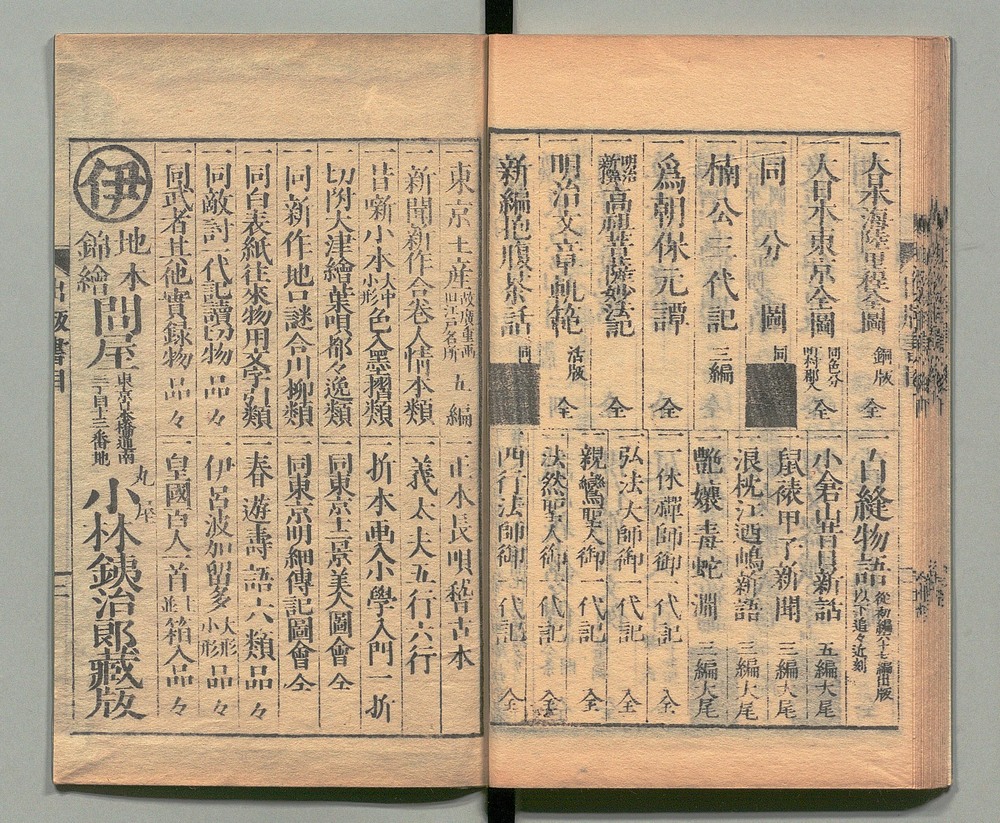 大日本海陸里程全圖 銅版 全
大日本東京全圖 同色分 全
同分圖 同
楠公三代記 三編
爲朝保元譚 全
明治新撰 高祖菩薩妙法記 全
明治文章軌範 活版 全
新編地腹茶話 同
白縫物語 從初編六十七編出版 以下追々近刻
小倉山青樹新話 五編大尾
鼠裱甲子新聞 三編大尾
浪枕江廼嶋新語 三編大尾
艶孃毒蛇淵 三編大尾
一休禪師御一代記 全
弘法大師御一代記 全
親鸞聖人御一代記 全
法然聖人御一代記 全
西行法師御一代記 全
東京土産 故廣重画 旧江戸名所 五編
一新聞新作合巻人情本類
一昔噺小本 大中小形 色入墨摺類
一切附大津繪葉唄都々逸類
一同新作地口謎合川柳類
一同白表紙往來物用文字引類
一同敵討一代記讀切物品々
一同武者其他實録物品々
正本長唄稽古本
一義太夫五行六行
一折本画入小學入門一折
一同東京三十景美人圖會 全
一同東京明細傳記圖會 全
一春遊壽語六類品々
一伊呂波加留多 大形 小形 品々
一皇國百人一首 並ニ 箱入品々
伊
地本
錦繪
問屋
東京京橋通南
三丁目十三番地
丸屋
小林鉄治郎藏版
出版書目